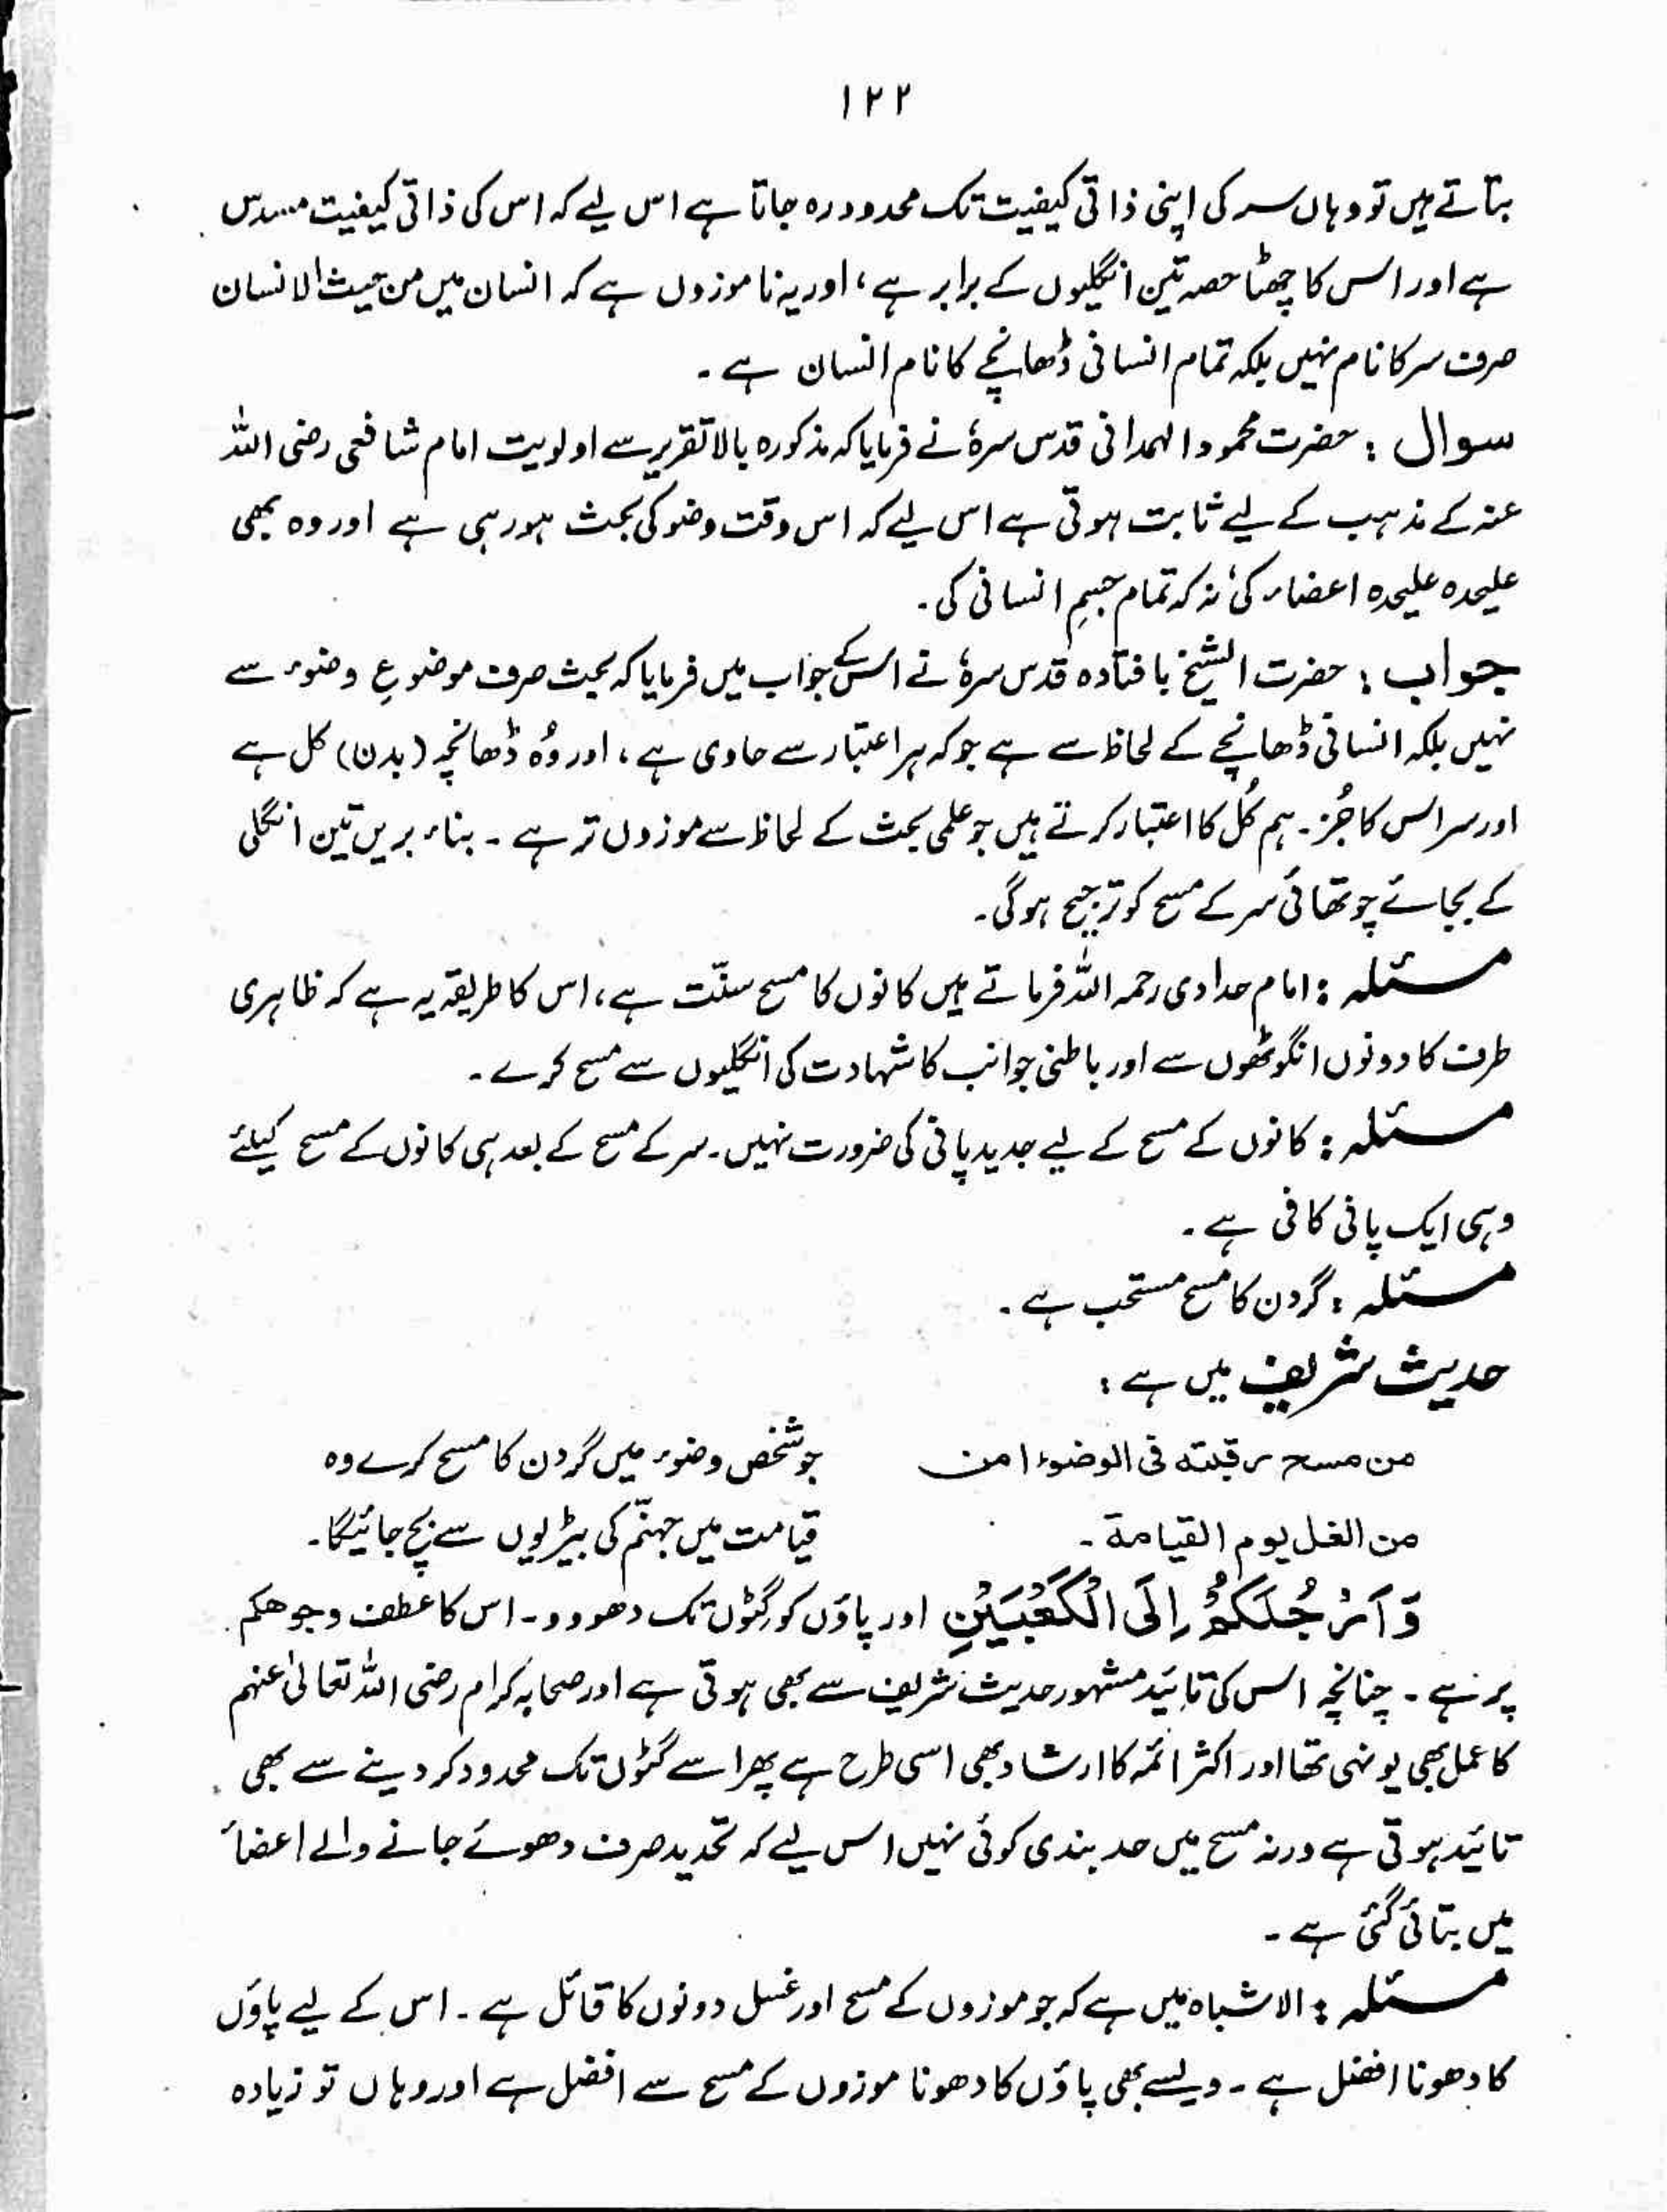 ۱۲۲
بتاتے ہیں تو وہاں سر کی اپنی ذاتی کیفیت تک محدود رہ جاتا ہے اس لیے کہ اس کی ذاتی کیفیت مسدس
ہے اور اس کا چھٹا حصہ تین انگلیوں کے برابر ہے، اور یہ ناموزوں ہے کہ انسان میں من حیث الانسان
صرف سر کا نام نہیں بلکہ تمام انسانی ڈھانچے کا نام انسان ہے۔
سوال : حضرت محمود الہمدانی قدس سرہٗ نے فرمایا کہ مذکورہ بالا تقریر سے اولویت امام شافعی رضی اللہ
عنہ کے مذہب کے لیے ثابت ہوتی ہے اس لیے کہ اس وقت وضو کی بحث ہورہی ہے اور وہ بھی
علیحدہ علیحدہ اعضاء کی، نہ کہ تمام جسمِ انسانی کی۔
جواب : حضرت الشیخ بافتادہ قدس سرہٗ نے اس کے جواب میں فرمایا کہ بحث صرف موضوعِ وضوء سے
نہیں بلکہ انسانی ڈھانچے کے لحاظ سے ہے جو کہ ہر اعتبار سے حاوی ہے، اور وُہ ڈھانچہ (بدن) کل ہے
اور سر اس کا جُز۔ ہم کُل کا اعتبار کرتے ہیں جو علمی بحث کے لحاظ سے موزوں تر ہے۔ بناء بریں تین انگلی
کے بجائے چوتھائی سر کے مسح کو ترجیح ہوگی۔
مسئلہ : امام حدادی رحمہ اللہ فرماتے ہیں کانوں کا مسح سنّت ہے، اس کا طریقہ یہ ہے کہ ظاہری
طرف کا دونوں انگوٹھوں سے اور باطنی جوانب کا شہادت کی انگلیوں سے مسح کرے۔
مسئلہ : کانوں کے مسح کے لیے جدید پانی کی ضرورت نہیں۔ سر کے مسح کے بعد ہی کانوں کے مسح کیلئے
وہی ایک پانی کافی ہے۔
مسئلہ : گردن کا مسح مستحب ہے۔
حدیث شریف میں ہے :
من مسح رقبته فی الوضوء امن جو شخص وضوء میں گردن کا مسح کرے وہ
من الغل يوم القيامة۔ قیامت میں جہنّم کی بیڑیوں سے بچ جائیگا۔
وَ اَرْجُلَكُمْ اِلَى الْكَعْبَيْنِ اور پاؤں کو گِٹّوں تک دھوو۔ اس کا عطف وجوھکم
پر ہے۔ چنانچہ اس کی تائید مشہور حدیث شریف سے بھی ہوتی ہے اور صحابہ کرام رضی اللہ تعالیٰ عنہم
کا عمل بھی یونہی تھا اور اکثر ائمہ کا ارشاد بھی اسی طرح ہے پھر اسے گٹوں تک محدود کر دینے سے بھی
تائید ہوتی ہے ورنہ مسح میں حد بندی کوئی نہیں اس لیے کہ تحدید صرف دھوئے جانے والے اعضأ
میں بتائی گئی ہے۔
مسئلہ : الاشباہ میں ہے کہ جو موزوں کے مسح اور غسل دونوں کا قائل ہے۔ اس کے لیے پاؤں
کا دھونا افضل ہے۔ ویسے بھی پاؤں کا دھونا موزوں کے مسح سے افضل ہے اور وہاں تو زیادہ